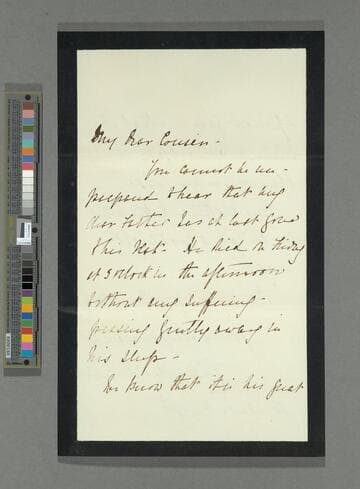 My Dear Cousin -
You cannot be un-
prepared to hear that my
dear Father has at last gone
to his Rest. He died on Friday
at 5 o'clock in the afternoon
without any suffering -
passing gently away in
his sleep -
We know that it is his great